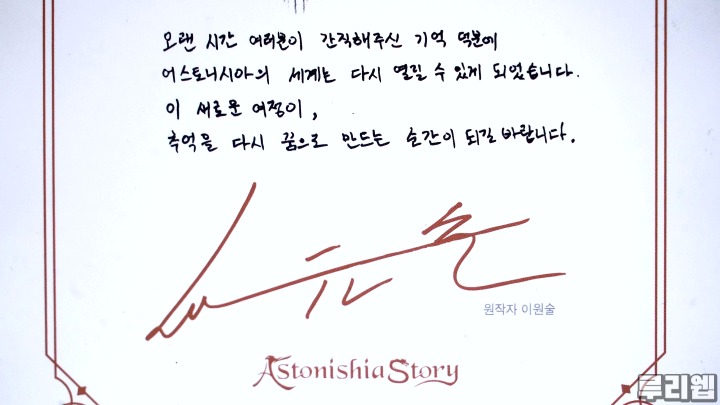 오랜 시간 여러분이 간직해주신 기억 덕분에
어스토니시아의 세계는 다시 열릴 수 있게 되었습니다.
이 새로운 여정이,
추억을 다시 꿈으로 만드는 순간이 되길 바랍니다.
원작자 이원술
Astonishia Story
루리웹